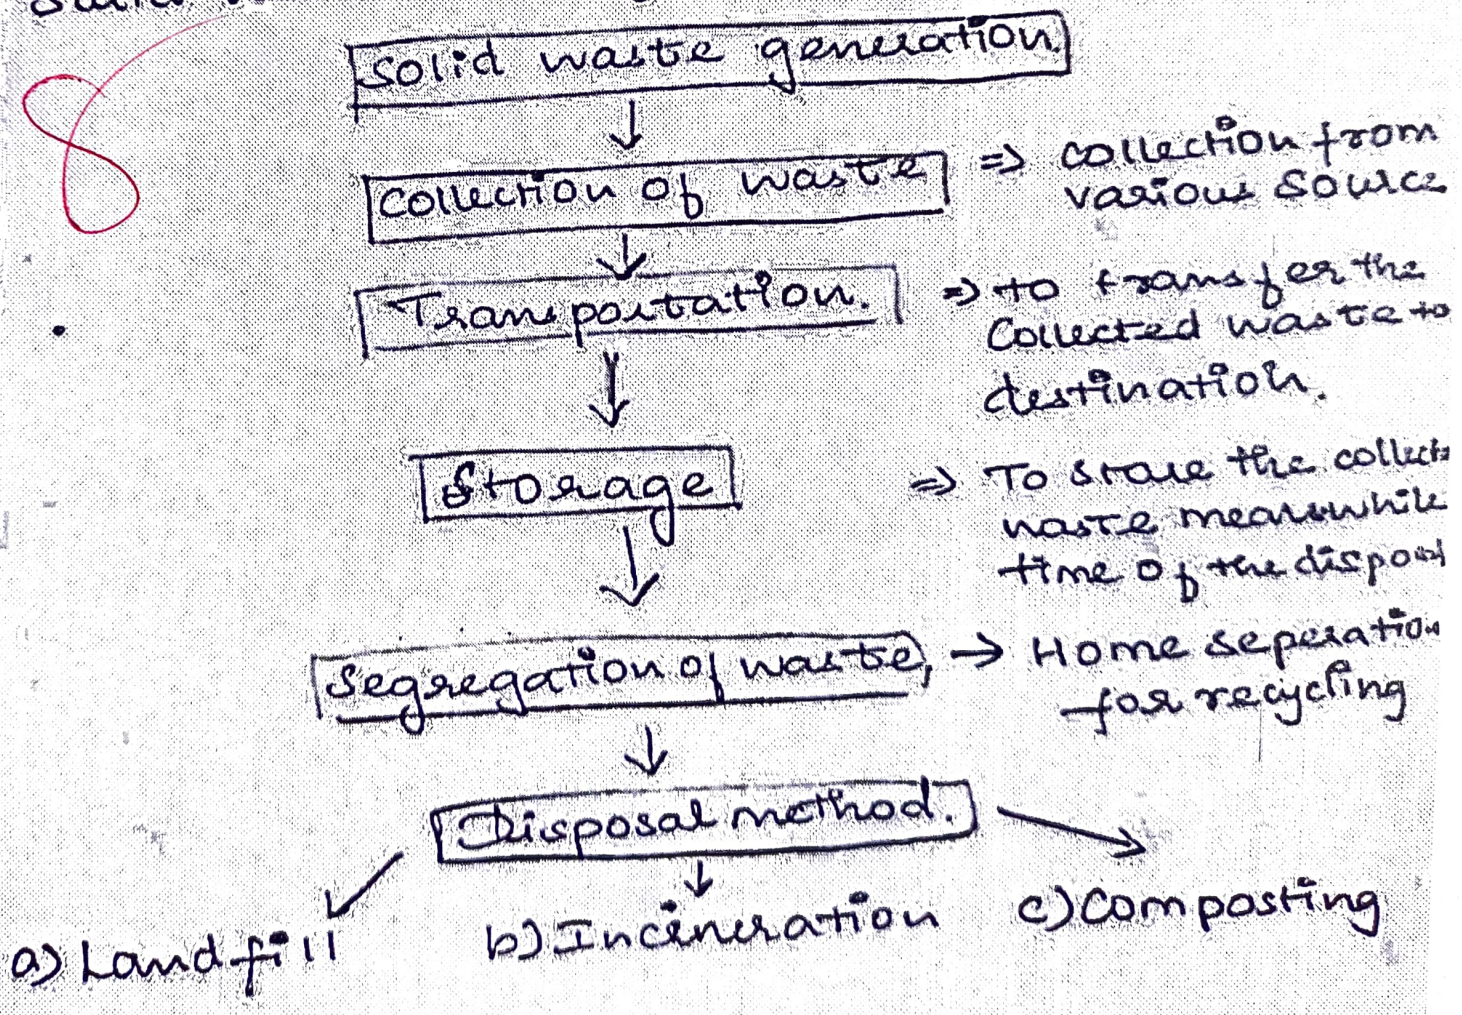 8
Solid waste generation.
Collection of waste => collection from
various source
Transportation. => to transfer the
Collected waste to
destination.
Storage => To store the collect
waste meanwhile
time of the disposal
Segregation of waste, → Home seperation
for recycling
Disposal method.
a) Land fill b) Incineration c) Composting